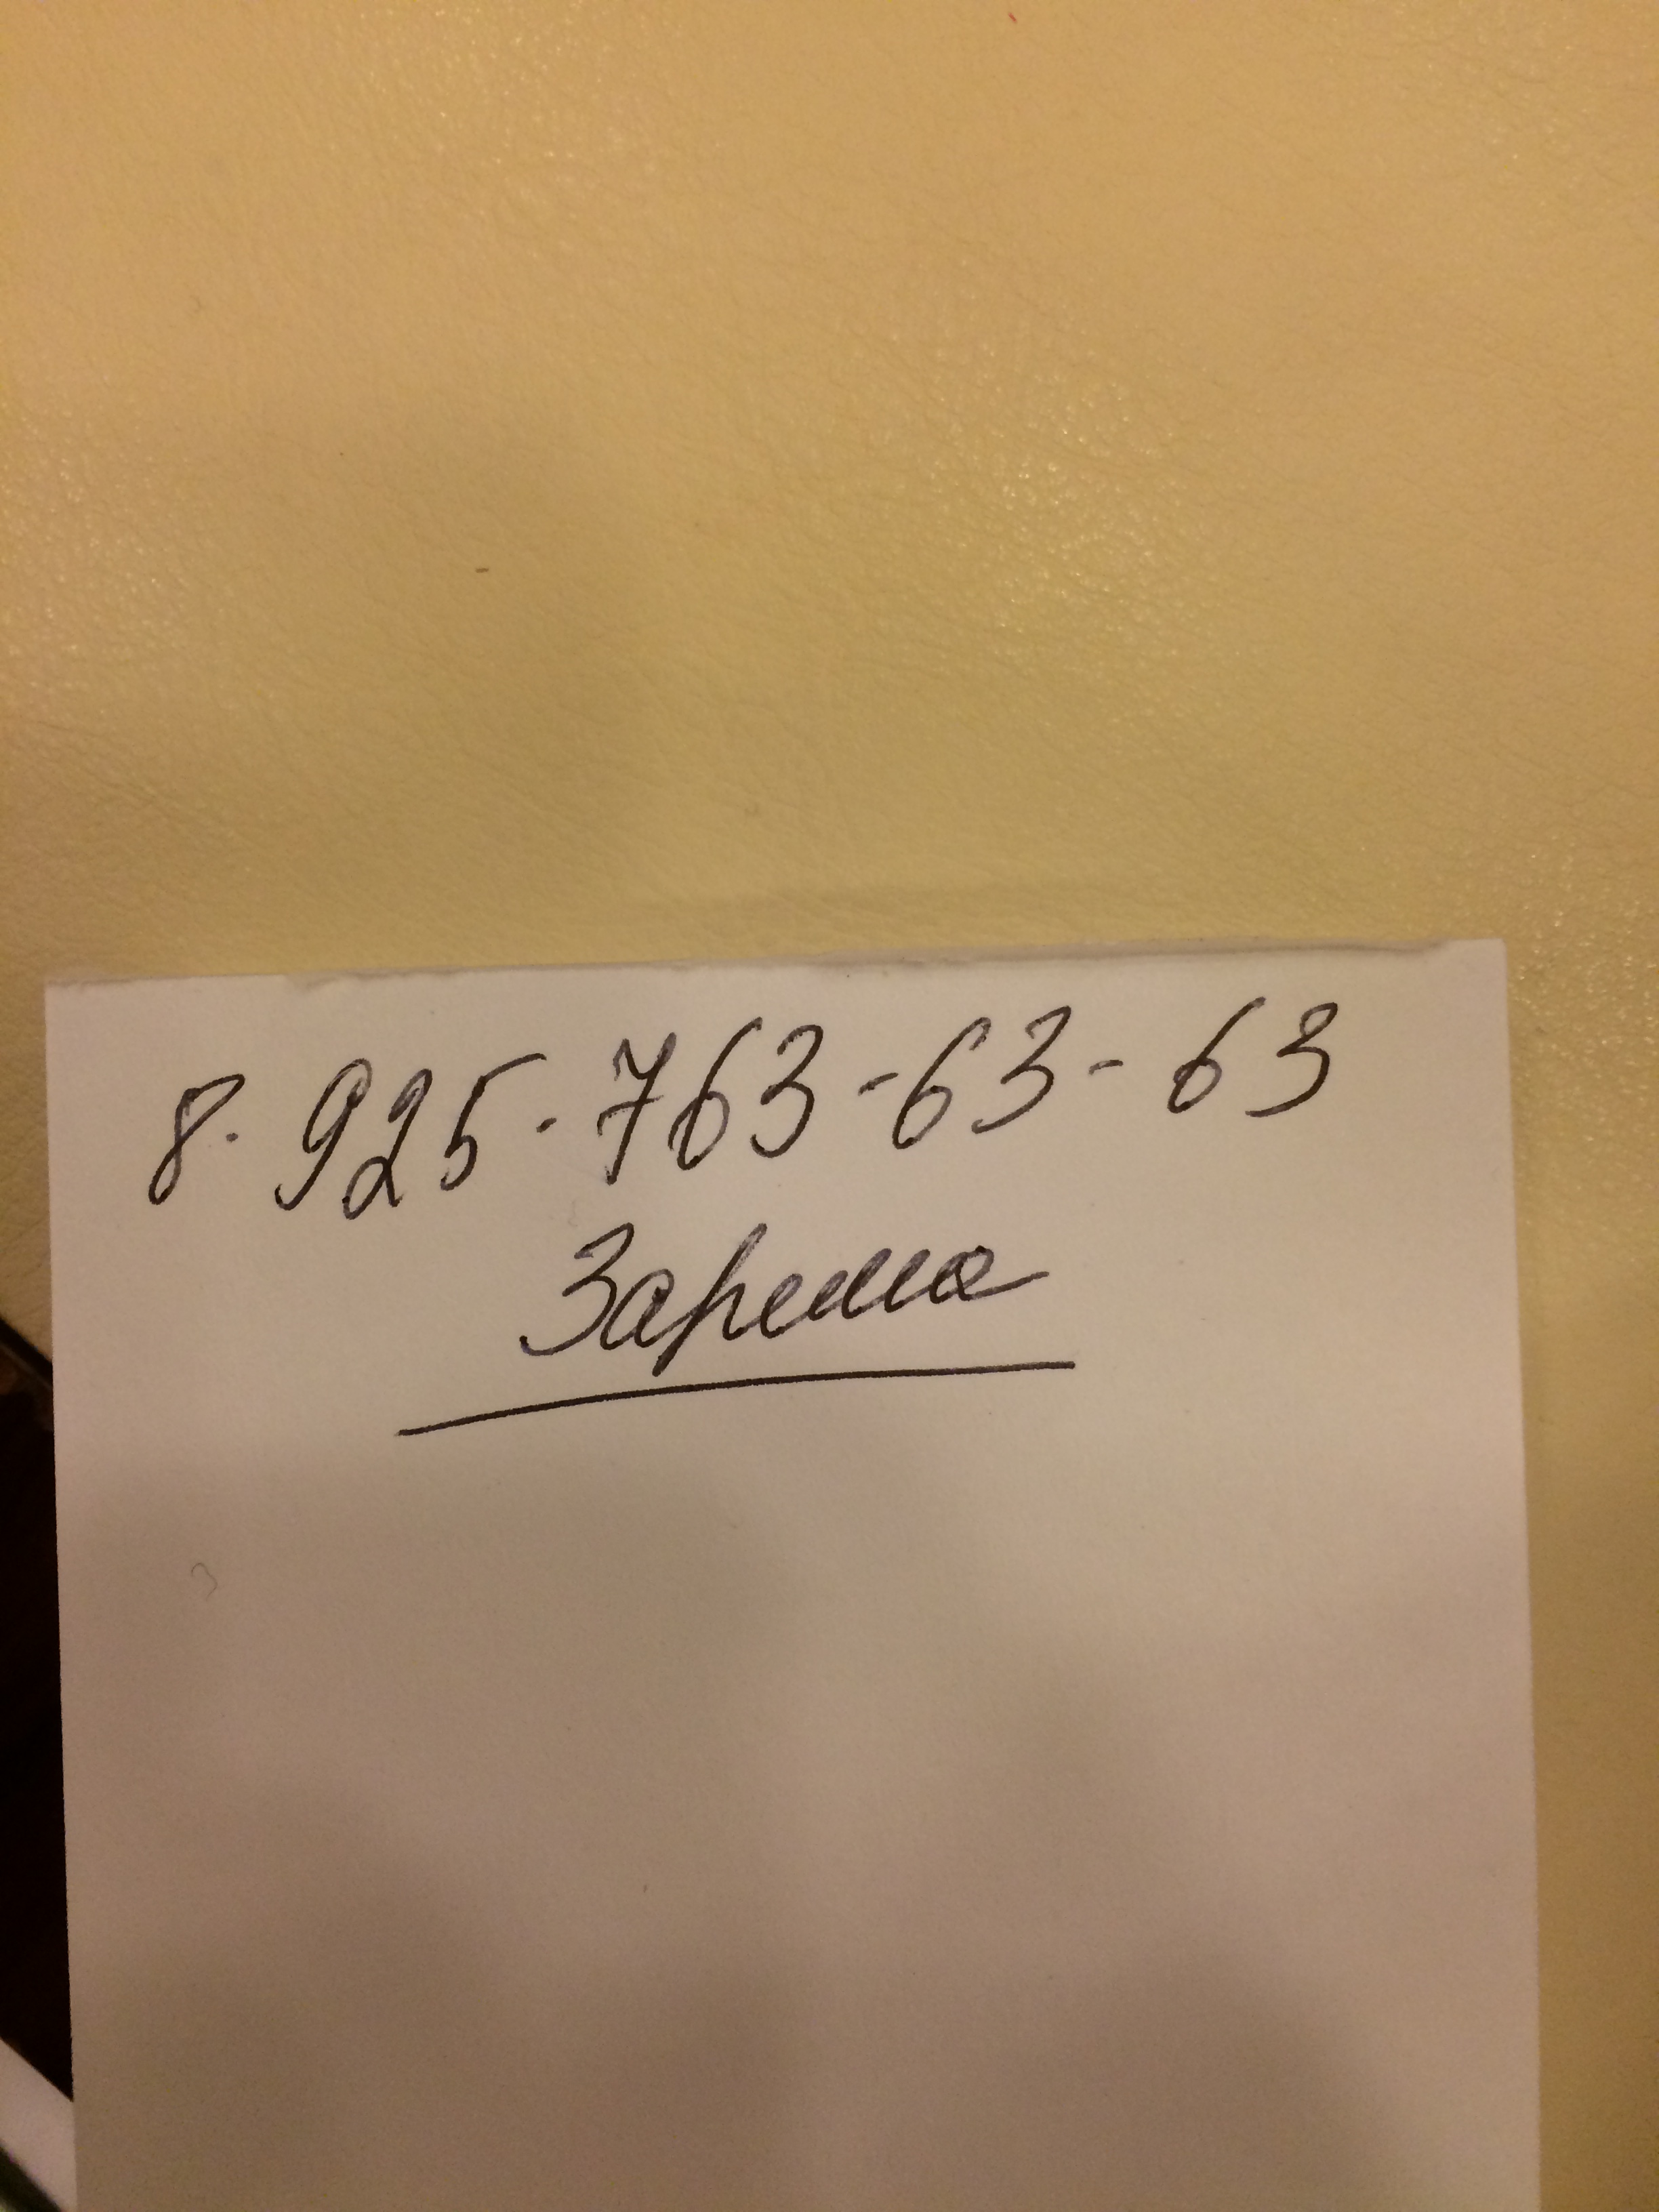 8. 925 - 763 - 63 - 63
Зарема